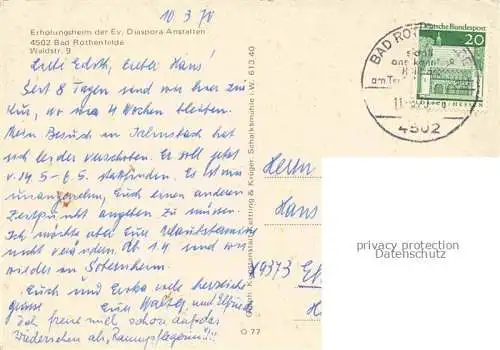 10 3 70
Erholungsheim der Ev. Diaspora-Anstalten
4502 Bad Rothenfelde
Waldstr. 9
Liebe Edith, Lieber Hans!
Seit 8 Tagen sind wir hier zur
Kur, wo wir 4 Wochen bleiben.
Mein Besuch in
hat sich leider verschoben. Er soll jetzt
v. 14.5 - 6.5. stattfinden. Es ist mir
unangenehm, Euch einen anderen
Zeitpunkt angeben zu müssen.
Ich möchte aber Eure Urlaubstermine
nicht verändern. Ab 1.4 sind wir
wieder in Sobernheim.
Euch und Erika viele herzliche
Grüsse Eure Walter und Elfriede
Ich freue mich schon auf das
Wiedersehen als
Graph. Kunstanstalt Kettling & Krüger, Schalksmühle i.W. 613.40
O 77
Deutsche Bundespost
20
BAD ROTHENFELDE
am Teutoburger
4502
Herrn
Hans
privacy protection
Datenschutz